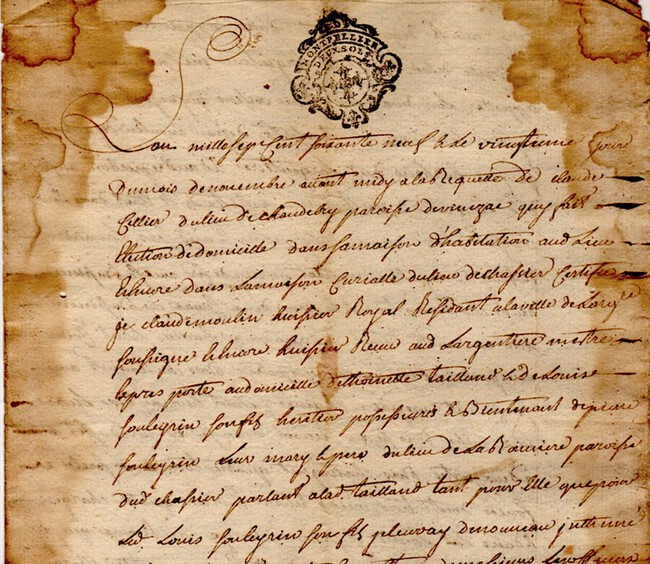 MONTPELLIER
DEUX SOLS
Lan mille sept Cent soixante neuf & le vingtieme jour
Dumois denovembre avant midy ala Requette de claude
Cellier dulieu de chaudebry paroisse devinezac quy fait
Election dedomicille dans samaison d'habitation aud Lieu
& Encore dans Lamaison Curialle dulieu dechassier Certifie
je claude moulin huissier Royal Residant alaville de Larg.re
soussigne & Encore huissier Receu aud Largentiere
expres porte au domicille dethoinette tailland & de Louis
souleyrin son fils heretier possesseurs & Bientenant de pierre
souleyrin Leur mary & pere dulieu de La paroisse
dud chassier parlant alad tailland tant pour Elle que pour
Led Louis souleyrin son fils denouveau